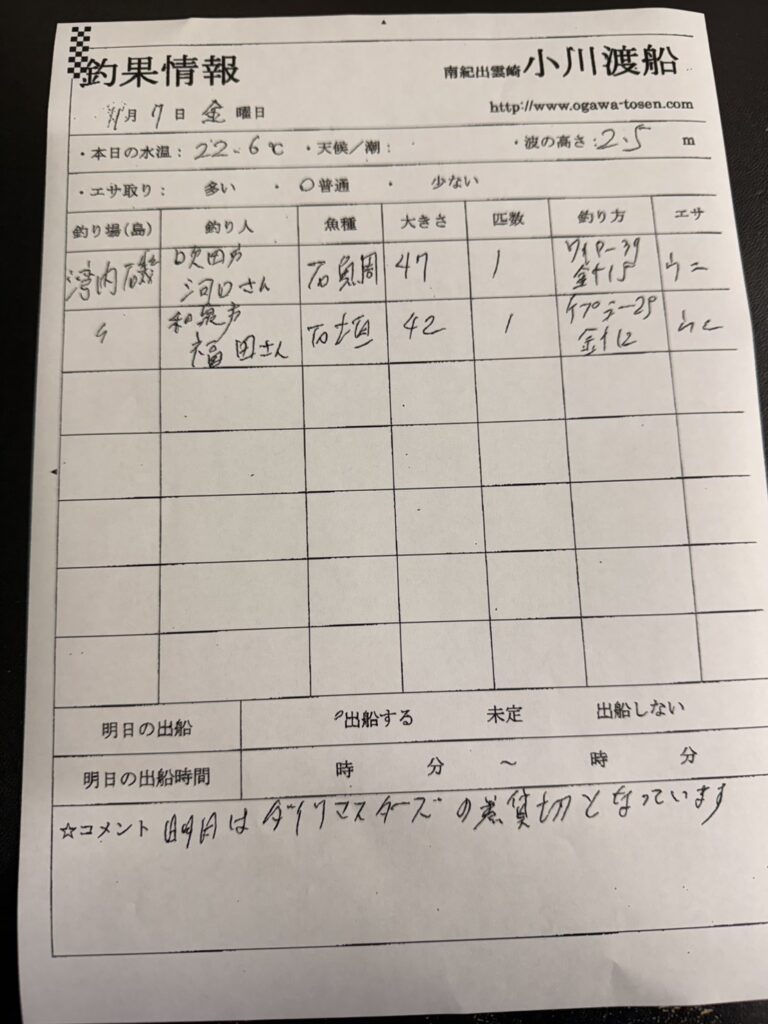 釣果情報
南紀出雲崎 小川渡船
http://www.ogawa-tosen.com
11月 7日 金曜日
・本日の水温：22.6℃ ・天候／潮： ・波の高さ：2.5 m
・エサ取り： 多い ・ ○普通 ・ 少ない
釣り場(島) 釣り人 魚種 大きさ 匹数 釣り方 エサ
湾内磯 吹田市 河口さん 石鯛 47 1 ワイヤー39 金ナ15 ウニ
〃 和泉市 福田さん 石垣 42 1 ケプラー28 金ナ12 ウニ
明日の出船 出船する 未定 出船しない
明日の出船時間 時 分 ～ 時 分
☆コメント 明日はダイリマスターズの為貸切となっています